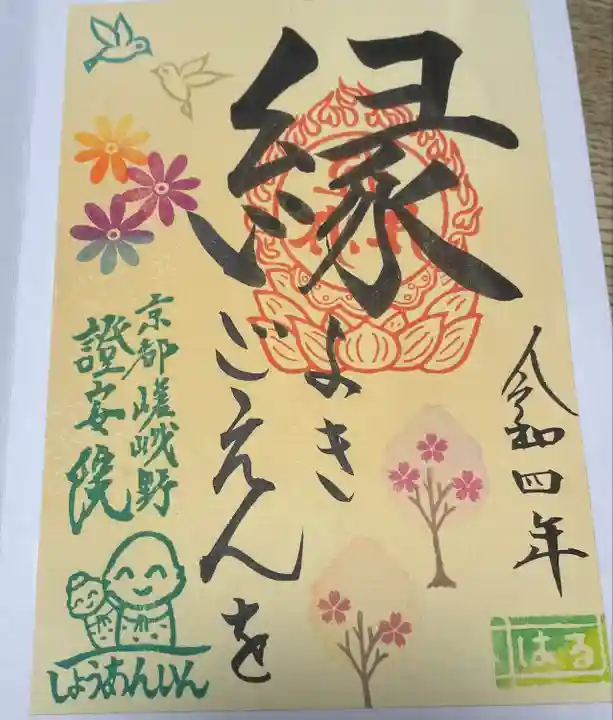 縁
よき
ごえんを
令和四年
京都嵯峨野
證安院
しょうあんいん
はる